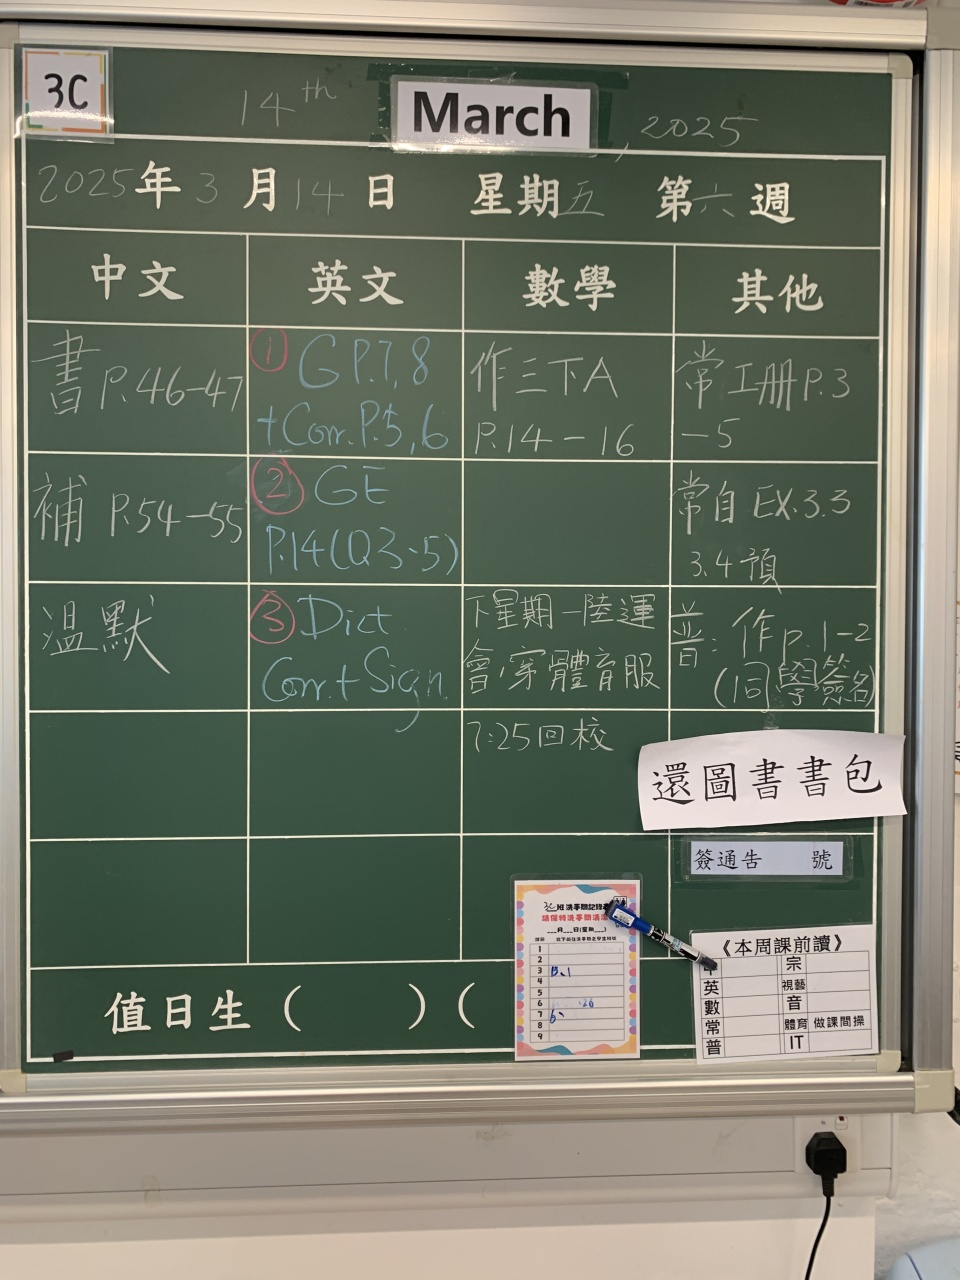 3C
14th March, 2025
2025年3月14日 星期五 第六週
中文 英文 數學 其他
書 P.46-47
① G P.7,8
+Corr. P.5,6
作三下A
P.14-16
常工冊 P.3
-5
補 P.54-55
② GE
P.14(Q3-5)
常自 EX.3.3
3.4預
溫默
③ Dict
Corr.+Sign
下星期一陸運
會,穿體育服
7:25回校
普:作P.1-2
(同學簽名)
還圖書書包
簽通告 號
值日生( )(
3C班洗手間記錄表
請保持洗手間清潔
___月___日(星期___)
1
2
3
4
5
6
7
8
9
《本周課前讀》
中 宗
英 視藝
數 音
常 體育 做課間操
普 IT